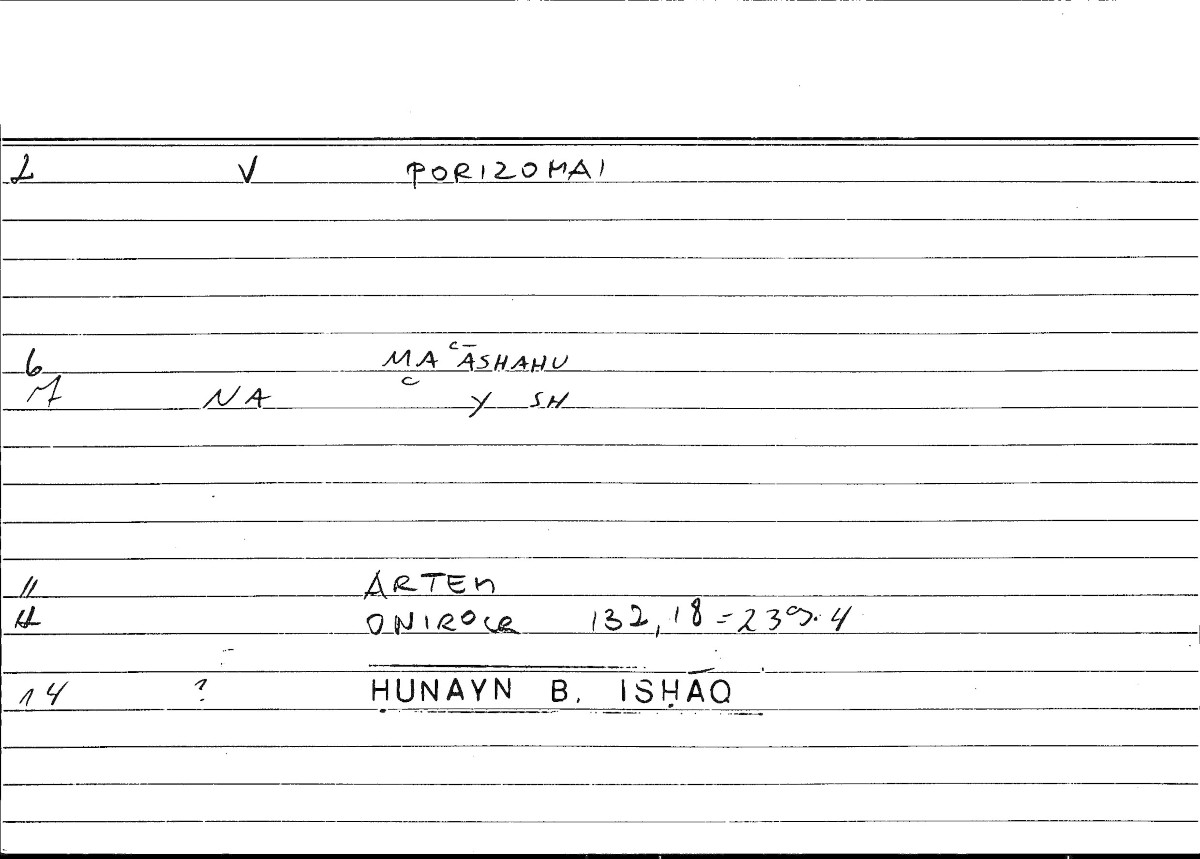 2 V PORIZOMAI
6 MA ʿĀSHAHU
7 NA ʿ Y SH
11 ARTEM
12 ONIROCR 132,18 = 239.4
14 ? ḤUNAYN B. ISḤĀQ